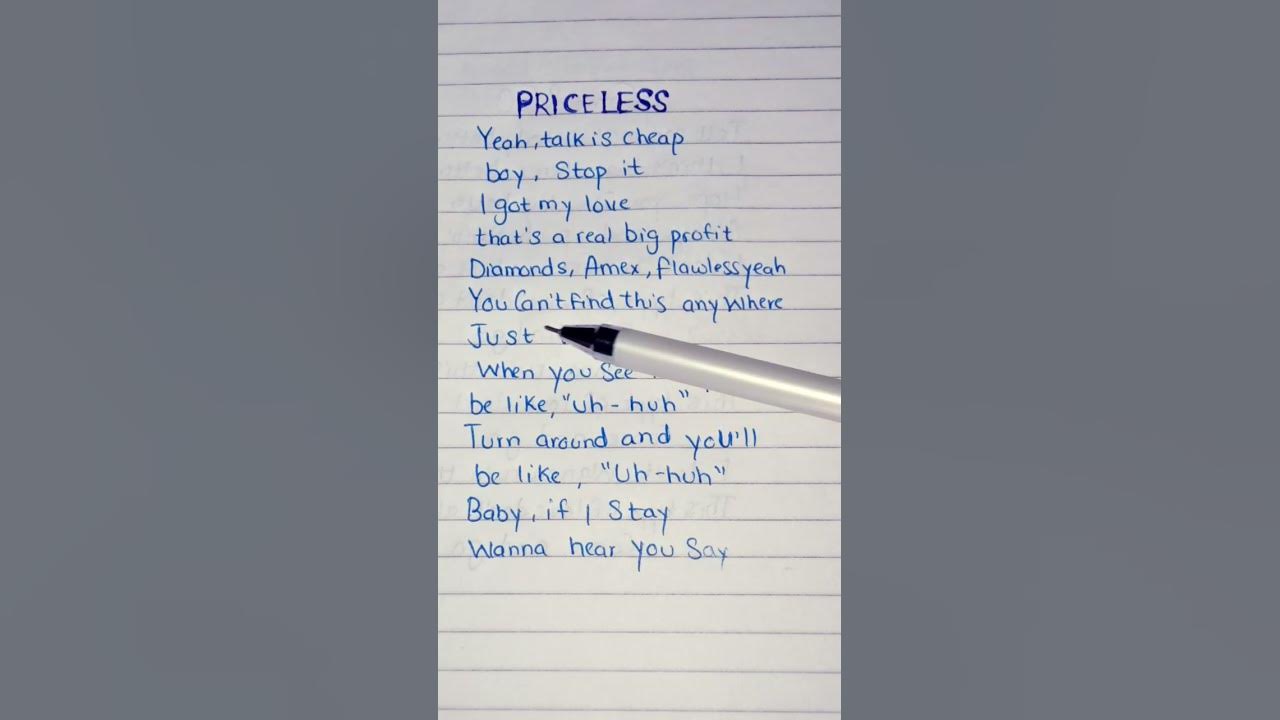 PRICELESS
Yeah, talk is cheap
boy, Stop it
I got my love
that's a real big profit
Diamonds, Amex, flawless yeah
You Can't find this any where
Just
When you See
be like, "uh-huh"
Turn around and you'll
be like, "Uh-huh"
Baby, if I Stay
Wanna hear you Say